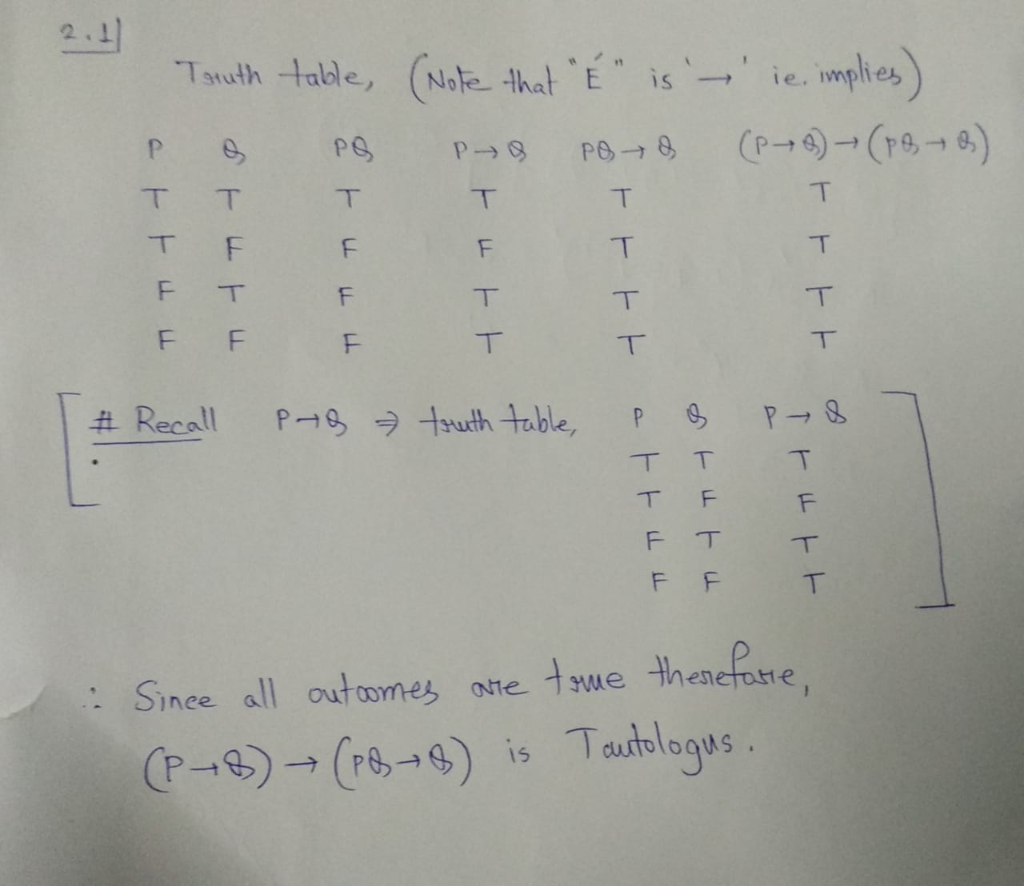 2.1
Truth table, (Note that "É" is '→' ie. implies)
P Q PQ P→Q PQ→Q (P→Q)→(PQ→Q)
T T T T T T
T F F F T T
F T F T T T
F F F T T T
# Recall P→Q ⇒ truth table, P Q P→Q
T T T
T F F
F T T
F F T
∴ Since all outcomes are true therefore,
(P→Q)→(PQ→Q) is Tautologus.